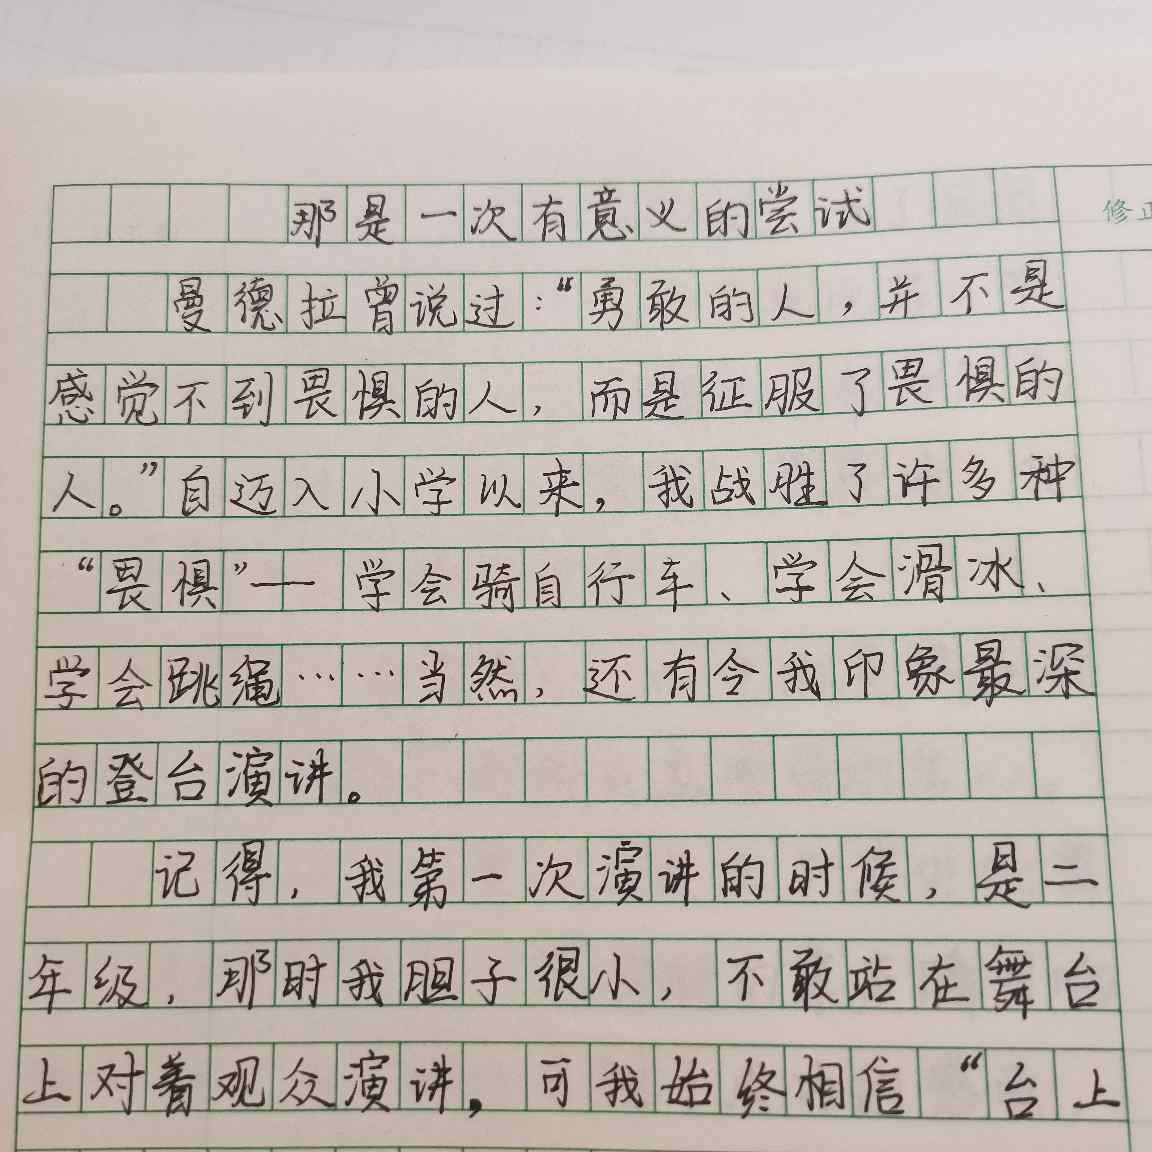 那是一次有意义的尝试
修正
曼德拉曾说过：“勇敢的人，并不是
感觉不到畏惧的人，而是征服了畏惧的
人。”自迈入小学以来，我战胜了许多种
“畏惧”—学会骑自行车、学会滑冰、
学会跳绳……当然，还有令我印象最深
的登台演讲。
记得，我第一次演讲的时候，是二
年级，那时我胆子很小，不敢站在舞台
上对着观众演讲，可我始终相信“台上